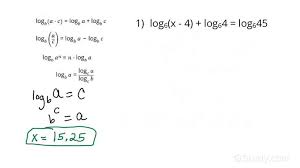 log_b(a · c) = log_b a + log_b c
log_b(a/c) = log_b a − log_b c
log_b aⁿ = n · log_b a
log_b a = log_c a / log_c b
log_b a = c
b^c = a
x = 15.25
1) log₆(x - 4) + log₆4 = log₆45
Study.com